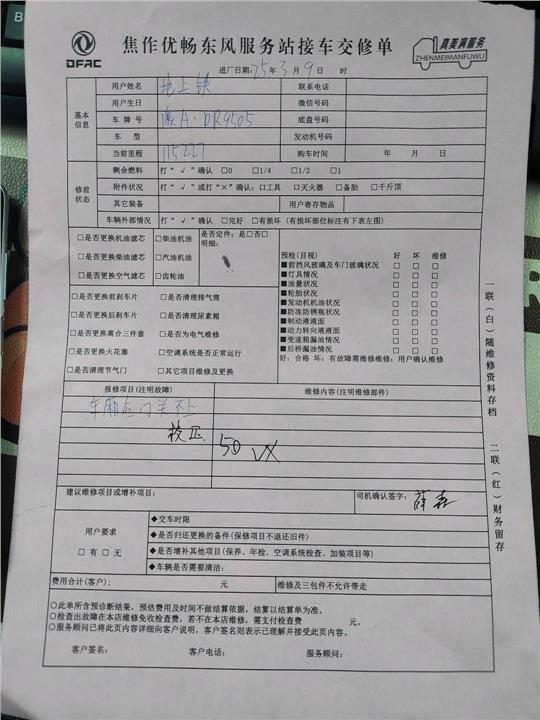 DFAC
焦作优畅东风服务站接车交修单
真美满服务
ZHENMEIMANFUWU
进厂日期:25年3月9日 时
基本信息
用户姓名 地上铁 联系电话
用户生日 微信号码
车牌号 A·DR9505 底盘号码
车型 发动机号码
当前里程 115227 购车时间 年 月 日
修前状态
剩余燃料 打“√”确认 □0 □1/4 □1/2 □1
附件状况 打“√”或打“×”确认:□工具 □灭火器 □备胎 □千斤顶
其它装备 用户寄存物品
车辆外部情况 打“√”确认 □完好 □有损坏(有损坏部位标注有下表左图)
□是否更换机油滤芯 □柴油机油 是否定件:是□否□
□是否更换柴油滤芯 □汽油机油 明细:
□是否更换空气滤芯 □齿轮油
□是否更换前刹车片 □是否清理排气筒
□是否更换后刹车片 □是否清理尿素箱
□是否更换离合三件套 □是否为电气维修
□是否更换火花塞 □空调系统是否正常运行
□是否清理节气门 □其它项目维修及更换
预检(目视) 好 坏 维修
■前挡风玻璃及车门玻璃状况 □ □ □
■灯具情况 □ □ □
■油量状况 □ □ □
■轮胎状况 □ □ □
■发动机机油状况 □ □ □
■防冻防锈瓶状况 □ □ □
■制动液液面 □ □ □
■动力转向液液面 □ □ □
■变速箱漏油情况 □ □ □
■后桥漏油情况 □ □ □
好:合格 坏:有故障需维修维修:用户确认维修
报修项目(注明故障) 维修内容(注明维修部件)
车厢后门关不上
校正 50 VX
建议维修项目或增补项目: 司机确认签字:薛森
用户要求
□有 □无
◆交车时限
◆是否归还更换的备件(保修项目不退还旧件)
◆是否增补其他项目(保养、年检、空调系统检查、加装项目等)
◆车辆是否需要清洁:
费用合计(客户): 元 维修及三包件不允许带走
○此单所含预诊断结果,预估费用及时间不做结算依据,结算以结算单为准。
○检查出故障在本店维修免收检查费,若不在本店维修,需支付检查费 元。
○服务顾问已将此页内容详细向客户说明,客户签名则表示已理解并接受此页内容。
客户签名: 客户电话: 服务顾问:
一联(白)随维修资料存档
二联(红)财务留存